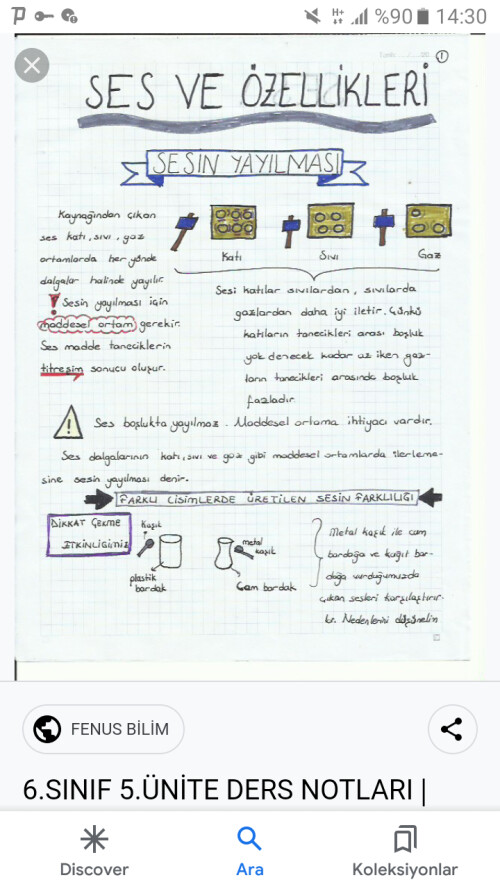 %90 14:30
1
SES VE ÖZELLİKLERİ
SESİN YAYILMASI
Kaynağından çıkan
ses katı, sıvı, gaz
ortamlarda her yönde
dalgalar halinde yayılır.
! Sesin yayılması için
maddesel ortam gerekir.
Ses madde taneciklerin
titreşim sonucu oluşur.
Katı Sıvı Gaz
Sesi katılar sıvılardan, sıvılarda
gazlardan daha iyi iletir. Çünkü
katıların tanecikleri arası boşluk
yok denecek kadar az iken gaz-
ların tanecikleri arasında boşluk
fazladır.
! Ses boşlukta yayılmaz. Maddesel ortama ihtiyacı vardır.
Ses dalgalarının katı, sıvı ve gaz gibi maddesel ortamlarda ilerleme-
sine sesin yayılması denir.
FARKLI CİSİMLERDE ÜRETİLEN SESİN FARKLILIĞI
DİKKAT ÇEKME
ETKİNLİĞİMİZ
Kaşık
plastik
bardak
metal
kaşık
Cam bardak
Metal kaşık ile cam
bardağa ve kağıt bar-
dağa vurduğumuzda
çıkan sesleri karşılaştırır-
Nedenlerini düşünelim
FENUS BİLİM
6.SINIF 5.ÜNİTE DERS NOTLARI |
Discover
Ara
Koleksiyonlar